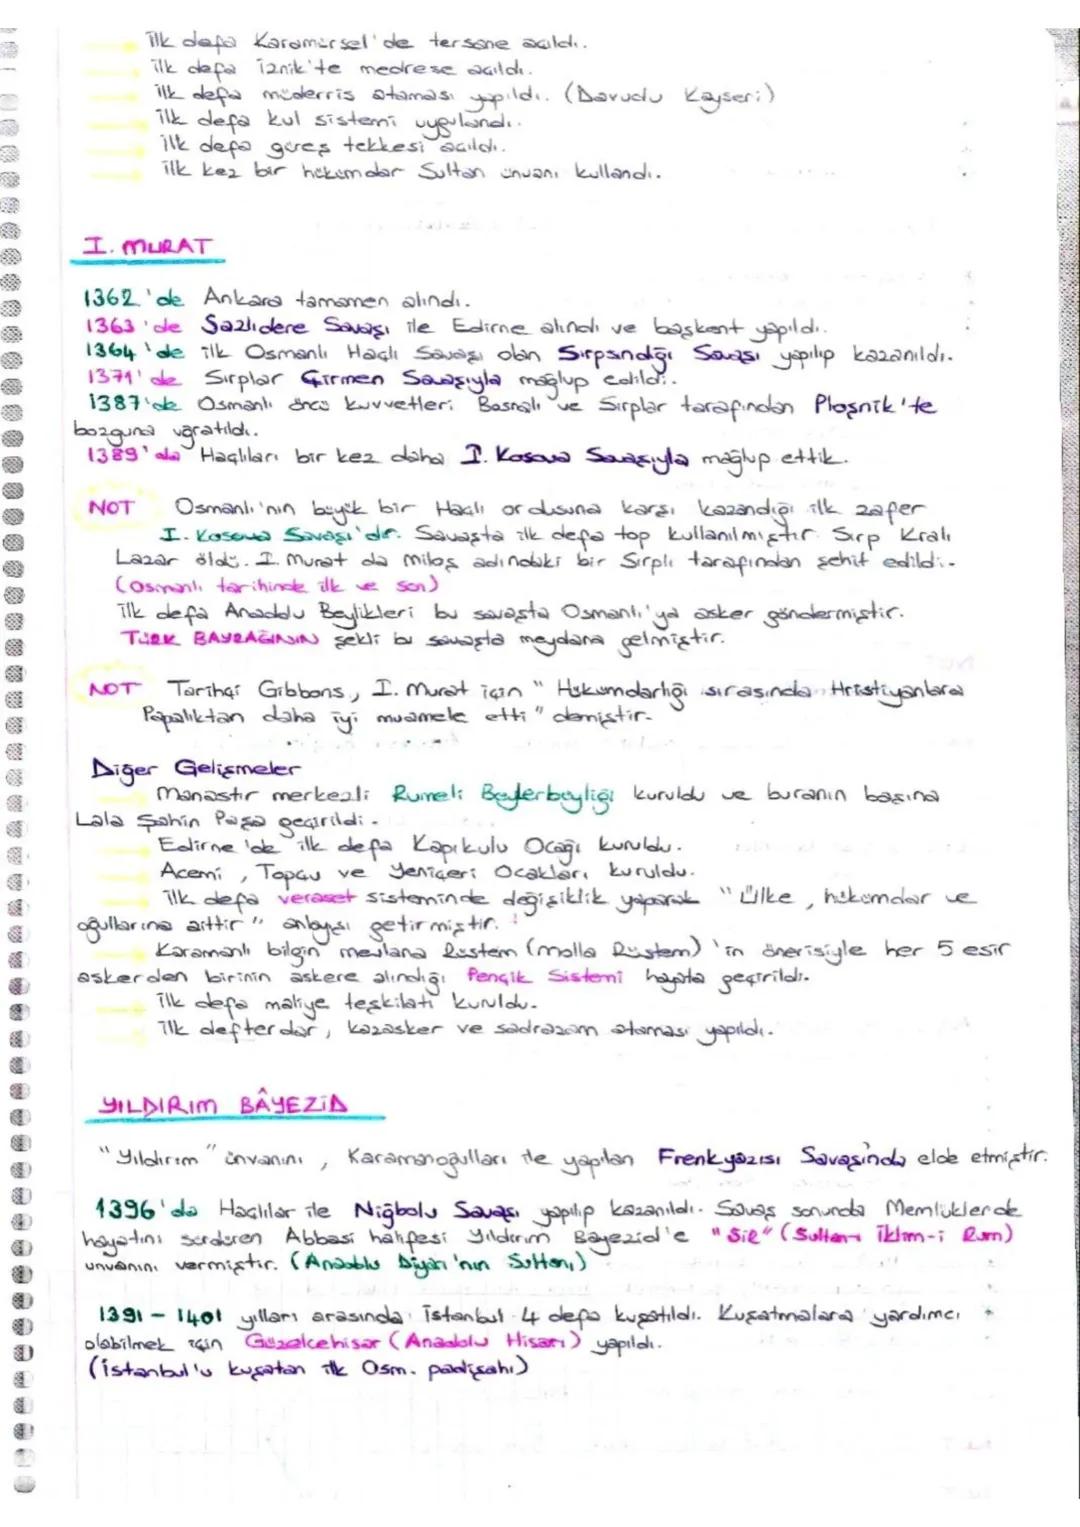 ilk defa Karamürsel'de tersane açıldı.
ilk defa İznik'te medrese açıldı.
ilk defa müderris ataması yapıldı. (Davudu Kayseri)
ilk defa kul sistemi uygulandı.
ilk defa güreş tekkesi açıldı.
ilk kez bir hükümdar Sultan ünvanı kullandı.
I. MURAT
1362'de Ankara tamamen alındı.
1363'de Sazlıdere Savaşı ile Edirne alındı ve başkent yapıldı.
1364'de ilk Osmanlı Haçlı Savaşı olan Sırpsındığı Savaşı yapılıp kazanıldı.
1371'de Sırplar Çirmen Savaşıyla mağlup edildi.
1387'de Osmanlı öncü kuvvetleri Bosnalı ve Sırplar tarafından Ploşnik'te
bozguna uğratıldı.
1389'da Haçlıları bir kez daha I. Kosova Savaşıyla mağlup ettik.
NOT Osmanlı'nın büyük bir Haçlı ordusuna karşı kazandığı ilk zafer
I. Kosova Savaşı'dır. Savaşta ilk defa top kullanılmıştır. Sırp Kralı
Lazar öldü. I. Murat da Miloş adındaki bir Sırplı tarafından şehit edildi.
(Osmanlı tarihinde ilk ve son)
ilk defa Anadolu Beylikleri bu savaşta Osmanlı'ya asker göndermiştir.
TÜRK BAYRAĞININ şekli bu savaşta meydana gelmiştir.
NOT Tarihçi Gibbons, I. Murat için "Hükümdarlığı sırasında Hristiyanlara
Papalıktan daha iyi muamele etti" demiştir.
Diğer Gelişmeler
Manastır merkezli Rumeli Beylerbeyliği kuruldu ve buranın başına
Lala Şahin Paşa geçirildi.
Edirne'de ilk defa Kapıkulu Ocağı kuruldu.
Acemi, Topçu ve Yeniçeri Ocakları kuruldu.
ilk defa veraset sisteminde değişiklik yaparak "Ülke, hükümdar ve
oğullarına aittir" anlayışı getirmiştir.
Karamanlı bilgin mevlana Rüstem (molla Rüstem)'in önerisiyle her 5 esir
askerden birinin askere alındığı Pençik Sistemi hayata geçirildi.
ilk defa maliye teşkilatı kuruldu.
ilk defterdar, kazasker ve sadrazam ataması yapıldı.
YILDIRIM BÂYEZİD
"Yıldırım" ünvanını, Karamanoğulları ile yapılan Frenkyazısı Savaşında elde etmiştir.
1396'da Haçlılar ile Niğbolu Savaşı yapılıp kazanıldı. Savaş sonunda Memlüklerde
hayatını sürdüren Abbasi halifesi Yıldırım Bayezid'e "SİR" (Sultan-ı İklim-i Rum)
unvanını vermiştir. (Anadolu Diyarı'nın Sultanı)
1391 - 1401 yılları arasında İstanbul 4 defa kuşatıldı. Kuşatmalara yardımcı
olabilmek için Güzelcehisar (Anadolu Hisarı) yapıldı.
(İstanbul'u kuşatan ilk Osm. padişahı)